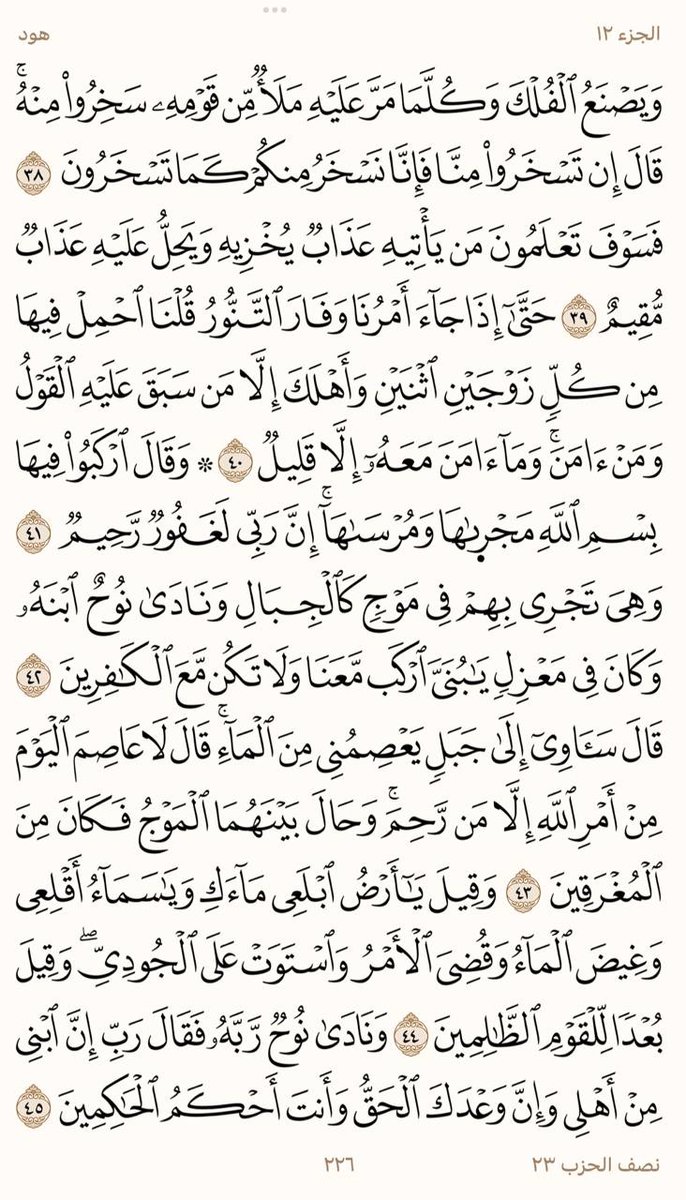 الجزء ١٢ هود
وَيَصْنَعُ ٱلْفُلْكَ وَكُلَّمَا مَرَّ عَلَيْهِ مَلَأٌ مِّن قَوْمِهِۦ سَخِرُوا۟ مِنْهُ ۚ
قَالَ إِن تَسْخَرُوا۟ مِنَّا فَإِنَّا نَسْخَرُ مِنكُمْ كَمَا تَسْخَرُونَ ٣٨
فَسَوْفَ تَعْلَمُونَ مَن يَأْتِيهِ عَذَابٌ يُخْزِيهِ وَيَحِلُّ عَلَيْهِ عَذَابٌ
مُّقِيمٌ ٣٩ حَتَّىٰٓ إِذَا جَآءَ أَمْرُنَا وَفَارَ ٱلتَّنُّورُ قُلْنَا ٱحْمِلْ فِيهَا
مِن كُلٍّ زَوْجَيْنِ ٱثْنَيْنِ وَأَهْلَكَ إِلَّا مَن سَبَقَ عَلَيْهِ ٱلْقَوْلُ
وَمَنْ ءَامَنَ ۚ وَمَآ ءَامَنَ مَعَهُۥٓ إِلَّا قَلِيلٌ ٤٠ ۞ وَقَالَ ٱرْكَبُوا۟ فِيهَا
بِسْمِ ٱللَّهِ مَجْر۪ىٰهَا وَمُرْسَىٰهَآ ۚ إِنَّ رَبِّى لَغَفُورٌ رَّحِيمٌ ٤١
وَهِىَ تَجْرِى بِهِمْ فِى مَوْجٍ كَٱلْجِبَالِ وَنَادَىٰ نُوحٌ ٱبْنَهُۥ
وَكَانَ فِى مَعْزِلٍ يَـٰبُنَىَّ ٱرْكَب مَّعَنَا وَلَا تَكُن مَّعَ ٱلْكَـٰفِرِينَ ٤٢
قَالَ سَـَٔاوِىٓ إِلَىٰ جَبَلٍ يَعْصِمُنِى مِنَ ٱلْمَآءِ ۚ قَالَ لَا عَاصِمَ ٱلْيَوْمَ
مِنْ أَمْرِ ٱللَّهِ إِلَّا مَن رَّحِمَ ۚ وَحَالَ بَيْنَهُمَا ٱلْمَوْجُ فَكَانَ مِنَ
ٱلْمُغْرَقِينَ ٤٣ وَقِيلَ يَـٰٓأَرْضُ ٱبْلَعِى مَآءَكِ وَيَـٰسَمَآءُ أَقْلِعِى
وَغِيضَ ٱلْمَآءُ وَقُضِىَ ٱلْأَمْرُ وَٱسْتَوَتْ عَلَى ٱلْجُودِىِّ ۖ وَقِيلَ
بُعْدًا لِّلْقَوْمِ ٱلظَّـٰلِمِينَ ٤٤ وَنَادَىٰ نُوحٌ رَّبَّهُۥ فَقَالَ رَبِّ إِنَّ ٱبْنِى
مِنْ أَهْلِى وَإِنَّ وَعْدَكَ ٱلْحَقُّ وَأَنتَ أَحْكَمُ ٱلْحَـٰكِمِينَ ٤٥
نصف الحزب ٢٣ ٢٢٦